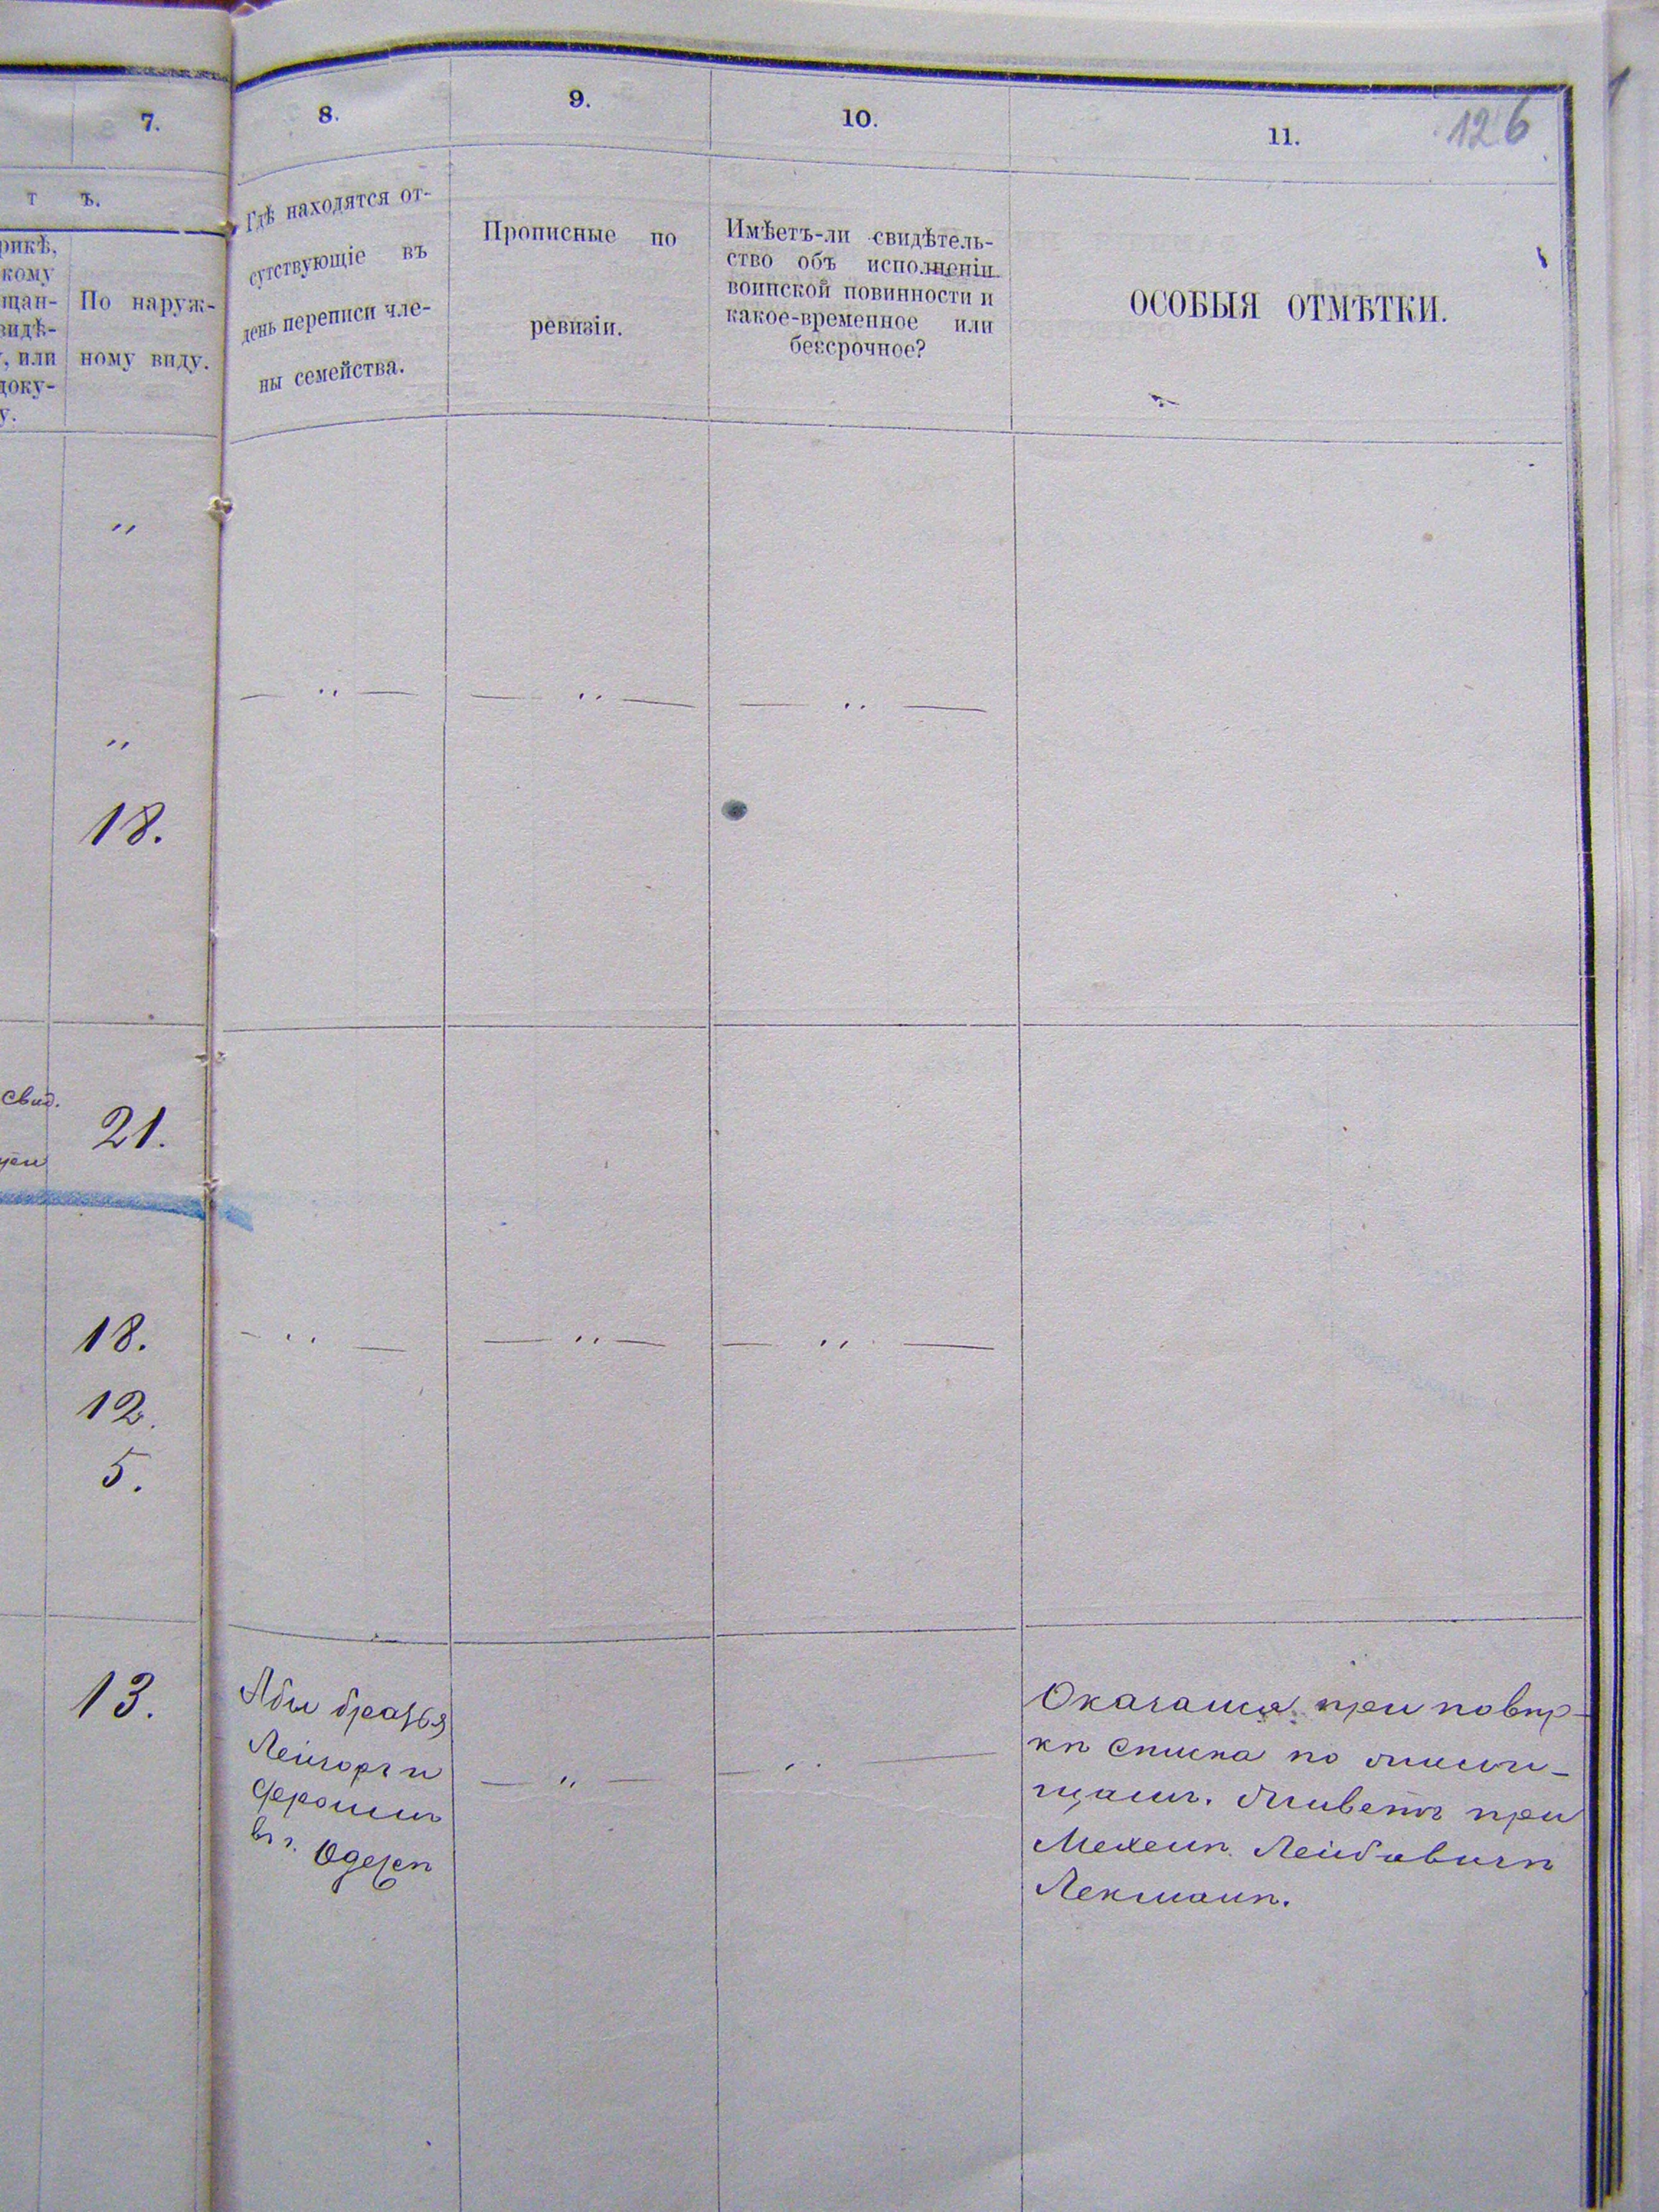 7.
8.
9.
10.
11.
126
т ъ.
рикѣ,
кому
щан-
видѣ-
, или
доку-
у.
По наруж-
ному виду.
Гдѣ находятся от-
сутствующіе въ
день переписи чле-
ны семейства.
Прописные по
ревизіи.
Имѣетъ-ли свидѣтель-
ство объ исполненіи
воинской повинности и
какое-временное или
безсрочное?
ОСОБЫЯ ОТМѢТКИ.
"
— " — — " — — " —
"
18.
свид.
21.
18.
— " — — " — — " —
12.
5.
13.
братья
и
въ г. Одессѣ
— " —
— " —
Оказался при повѣр-
кѣ списка по жили-
щамъ. Живетъ при
Лейбовичѣ